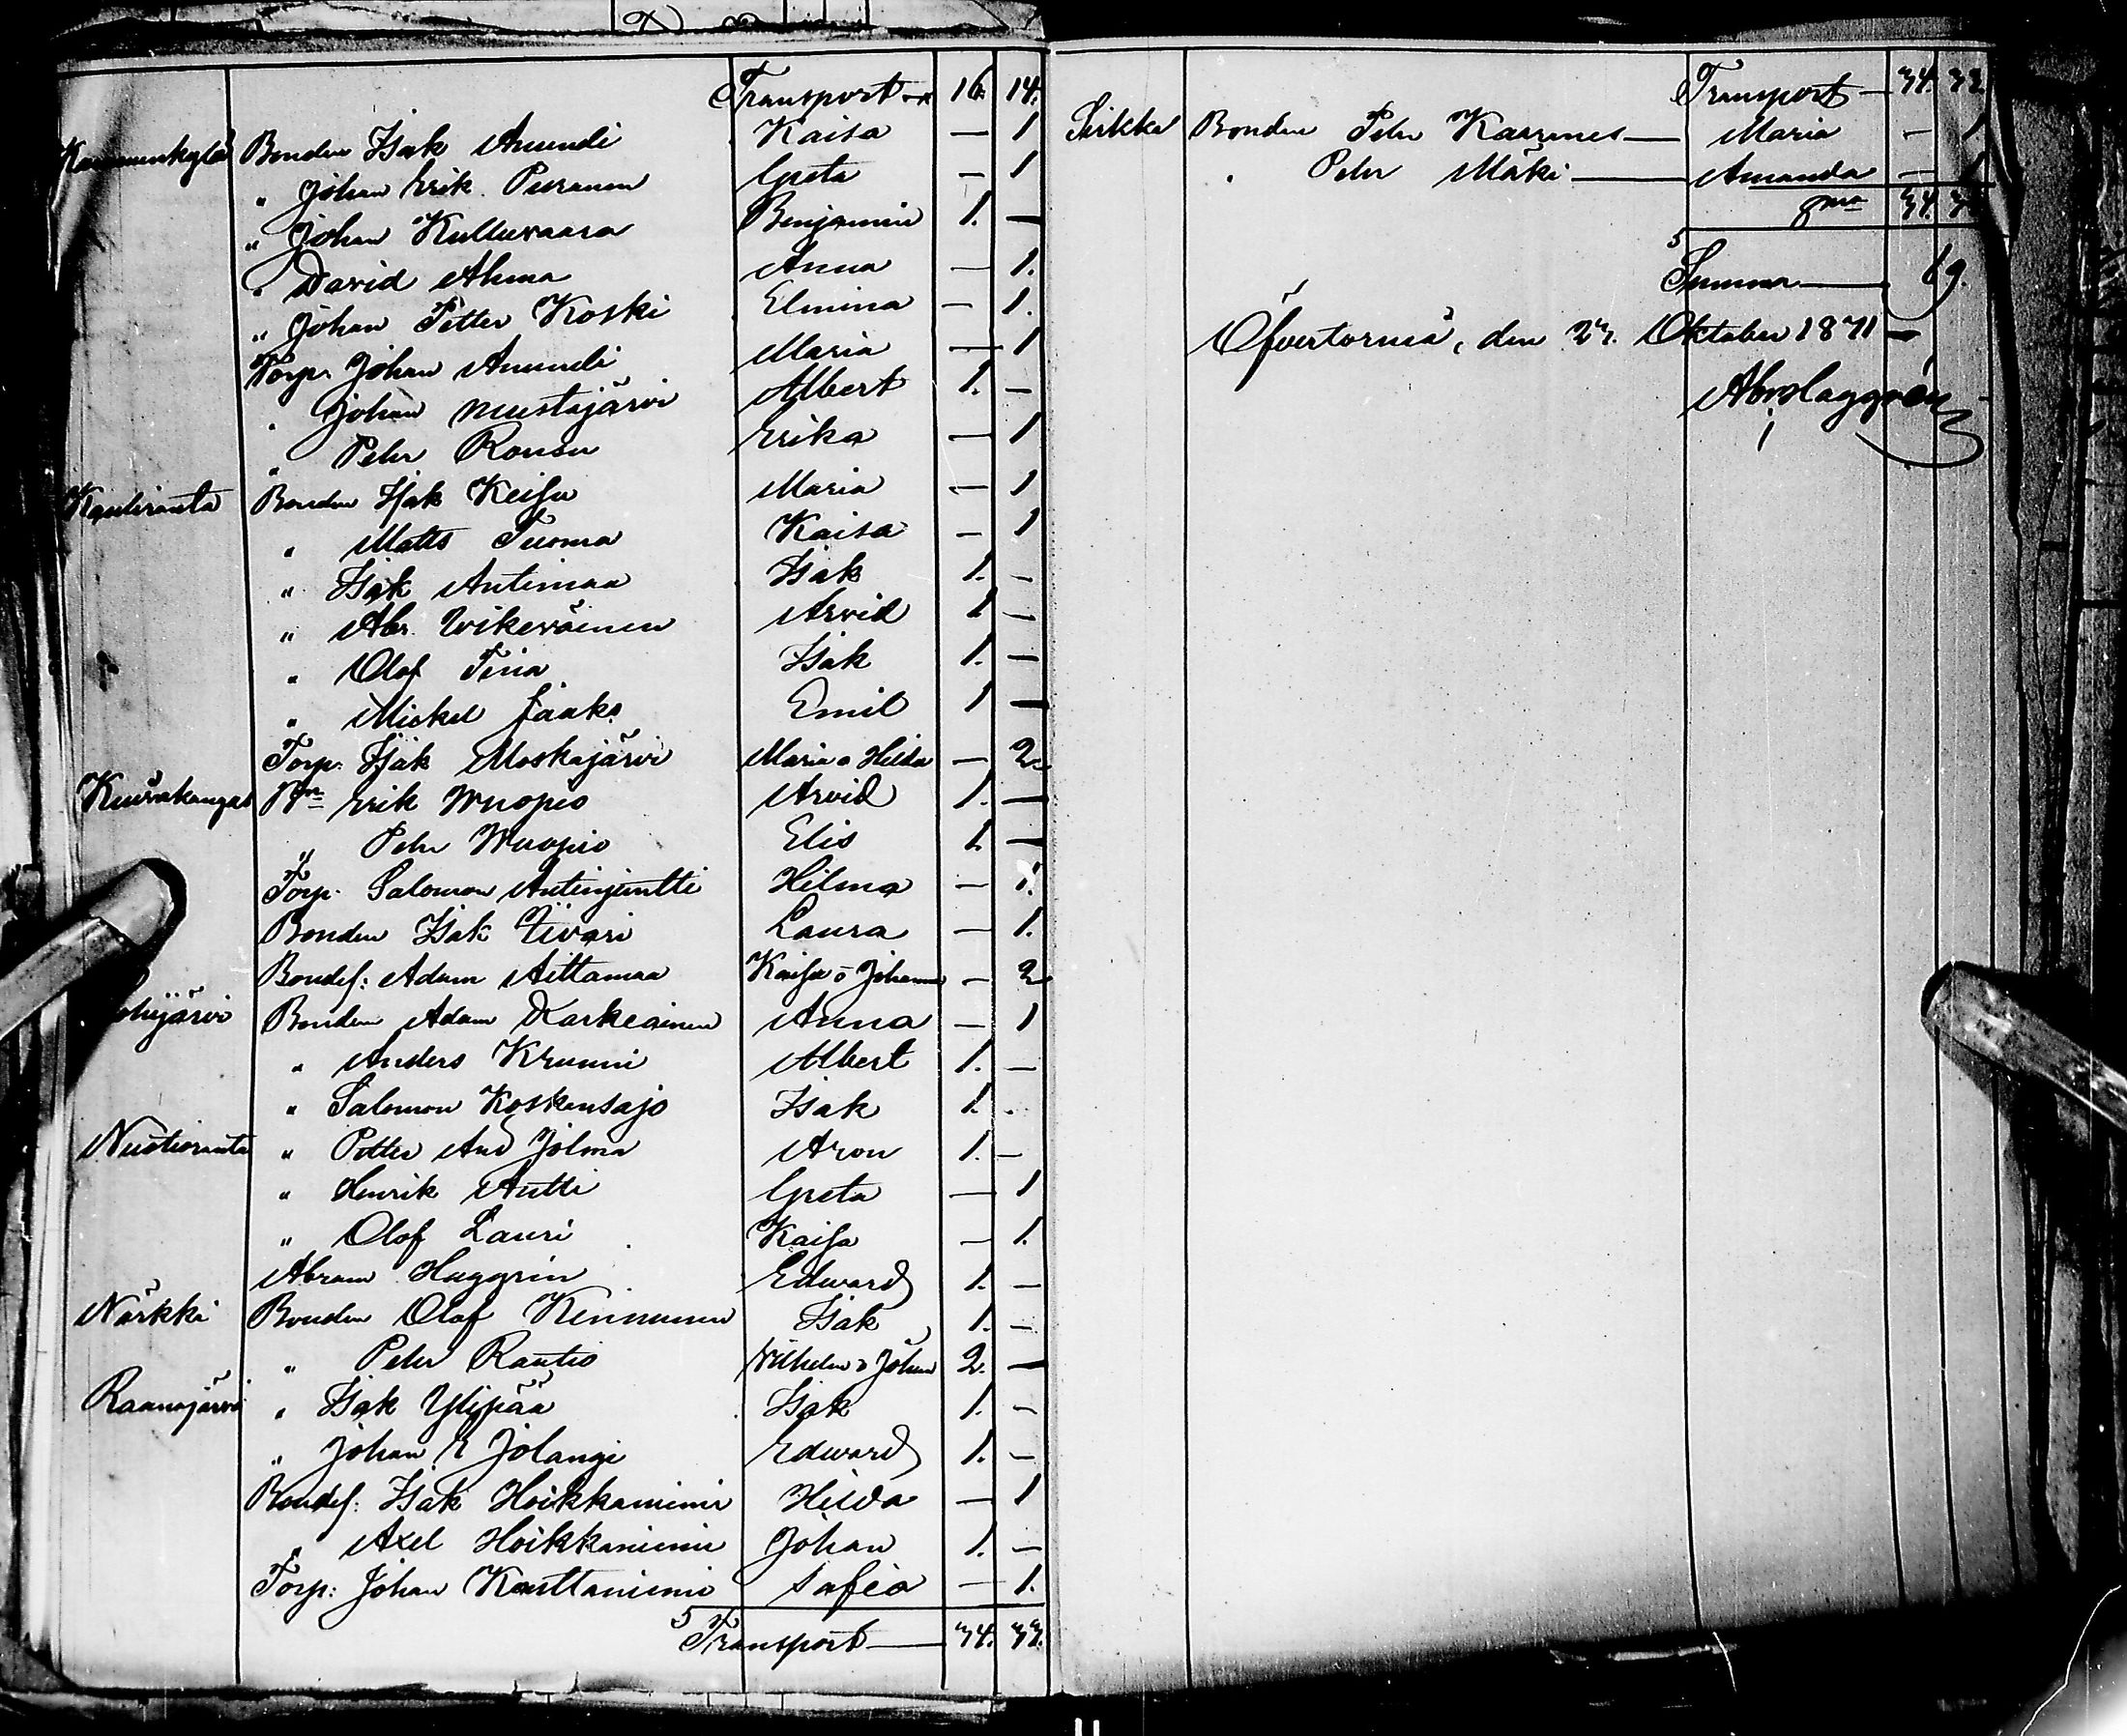 Transport 16. 14.
Bonden Isak Anundi Kaisa — 1
" Johan Erik Puranen Greta — 1
" Johan Kulluvaara Benjamin 1. —
" David Alma Anna — 1.
" Johan Petter Koski Elmina — 1.
Torp. Johan Anundi Maria — 1
" Johan Mustajärvi Albert 1. —
" Pehr Rousu Erika — 1
Kauliranta Bonden Isak Keisu Maria — 1
" Matts Tuoma Kaisa — 1
" Isak Antimaa Isak 1. —
" Abr. Wikeväinen Arvid 1 —
" Olof Isak 1. —
" Mickel Jaako Emil 1 —
Torp. Isak Moskajärvi Maria o Hilda — 2
Kuivakangas Bn Erik Wuopio Arvid 1. —
" Pehr Wuopio Elis 1. —
Torp. Salomon Antinjuntti Hilma — 1.
Bonden Isak Laura — 1.
Bondes: Adam Aittamaa Kaisa o Johanna — 2
Bonden Adam Karkeainen Anna — 1
" Anders Krunni Albert 1. —
" Salomon Koskensajo Isak 1. .
Nuotioranta " Petter And Jolma Aron 1. —
" Henrik Antti Greta — 1
" Olof Lauri Kaisa — 1.
Abram Haggrén Edward 1. —
Närkki Bonden Olof Kinnunen Isak 1. —
" Pehr Rautio Wilhelm o Johan 2. —
Raanojärvi " Isak Ylipää Isak 1. —
" Johan E Jolangi Edward 1. —
Bondes: Isak Hoikkaniemi Hilda — 1
" Axel Hoikkaniemi Johan 1. —
Torp: Johan Kauttaniemi Safia — 1.
Transport — 34. 33.
Transport — 34. 33
Sirkka Bonden Pehr — Maria — 1
" Pehr Mäki — Amanda — 1
34. 35
Summa — 69.
Öfvertorneå, den 27. Oktober 1871 —
Abr Haggrén